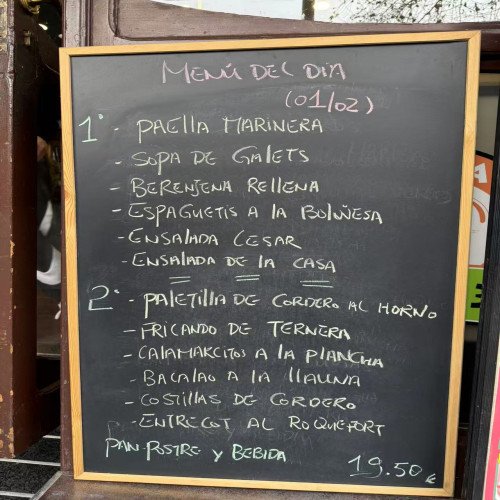 MENÚ DEL DIA
(01/02)
1º - PAELLA MARINERA
- SOPA DE GALETS
- BERENJENA RELLENA
- ESPAGUETIS A LA BOLOÑESA
- ENSALADA CESAR
- ENSALADA DE LA CASA
2º - PALETILLA DE CORDERO AL HORNO
- FRICANDO DE TERNERA
- CALAMARCITOS A LA PLANCHA
- BACALAO A LA LLAUNA
- COSTILLAS DE CORDERO
- ENTRECOT AL ROQUEFORT
PAN POSTRE Y BEBIDA
19.50 €